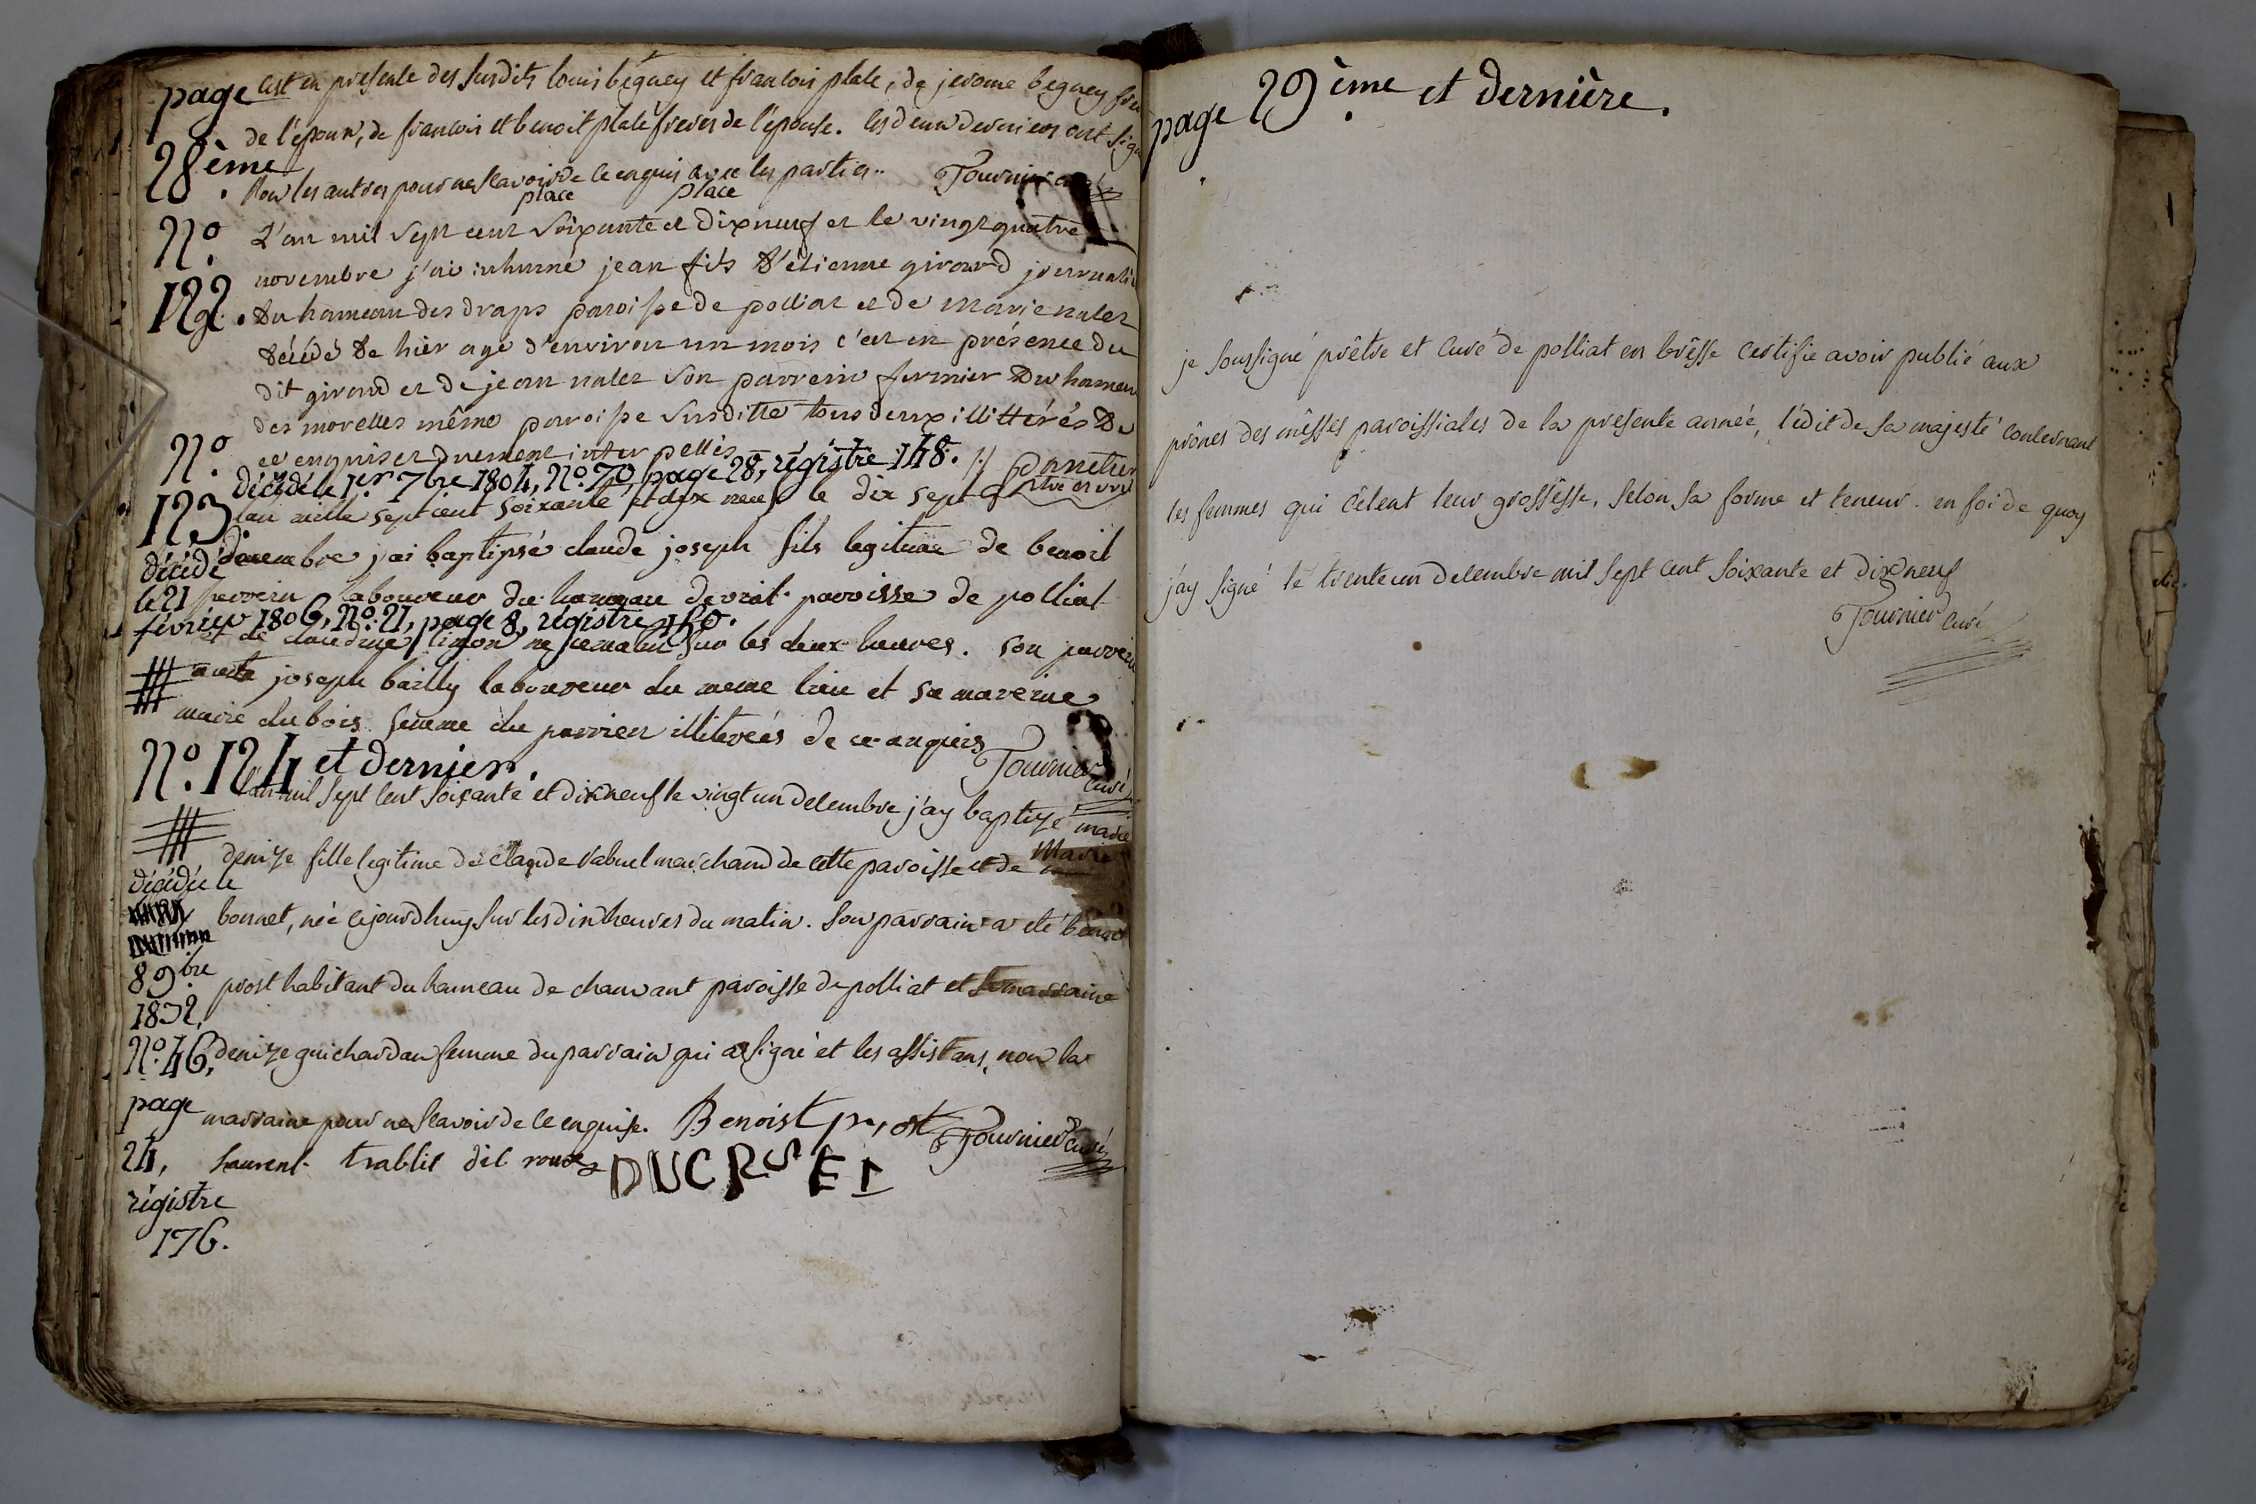 page
28ème.
c'est en presence des susdits louis beguey et francois plate, de jerome beguey frere
de l'epoux, de francois et benoit plate freres de l'epouse. les deux derniers ont signé
Non les autres pour ne scavoir de ce enquis avec les parties.. Tournier curé
place place
N.º
122.
L'an mil sept cent soixante et dixneuf et le vingt quatre
novembre j'ai inhumé jean fils d'étienne giroud journalier
du hameau des draps paroisse de polliat et de marie nalet
décédé de hier agé d'environ un mois c'est en présence du
dit giroud et de jean nalet son parrein fermier du hameau
des morelles même paroisse susditte tous deux illittérés de
ce enquis et duement interpellés
N.º
123
décédé le 1er 7bre 1804, Nº. 70, page 28, régistre 148.
lan mille sept cent soixante et dix neuf le dix sept
decembre j'ai baptipsé claude joseph fils legitime de benoit
décédé
le 21
perrein laboureur du hameau de vriat paroisse de polliat
février 1806, Nº. 21, page 8, régistre 150.
et de claudine limon ne ce matin sur les deux heures. son parrein
a este joseph bailly laboureur du meme lieu et sa mareine
marie dubois femme du parrien illitereés de ce anquis
Tournier curé
Nº. 124 et dernier.
l'an mil sept cent soixante et dixneuf le vingt un decembre j'ay baptizé marie
denize fille legitime de claude vabuel marchand de cette paroisse et de Marie
décédée le
bonnet, née cejourdhuy sur les dix heures du matin. Son parrain a été benoit
8 9bre
1832,
prost habitant du hameau de chanvant paroisse de polliat et sa marraine
Nº. 46,
denize guichardan femme du parrain qui a signé et les assistans, non la
page
marraine pour ne scavoir de ce enquise. Benoist prost Tournier curé
24,
laurent trablit dit roux DUCRSEL
régistre
176.
page 29ème et dernière.
je soussigné prêtre et curé de polliat en brêsse certifie avoir publié aux
prônes des mêsses paroissiales de la presente année, l'édit de sa majesté concernant
les femmes qui cêlent leur grossêsse, selon sa forme et teneur. en foi de quoy
j'ay signé le trente un decembre mil sept cent soixante et dixneuf
Tournier curé